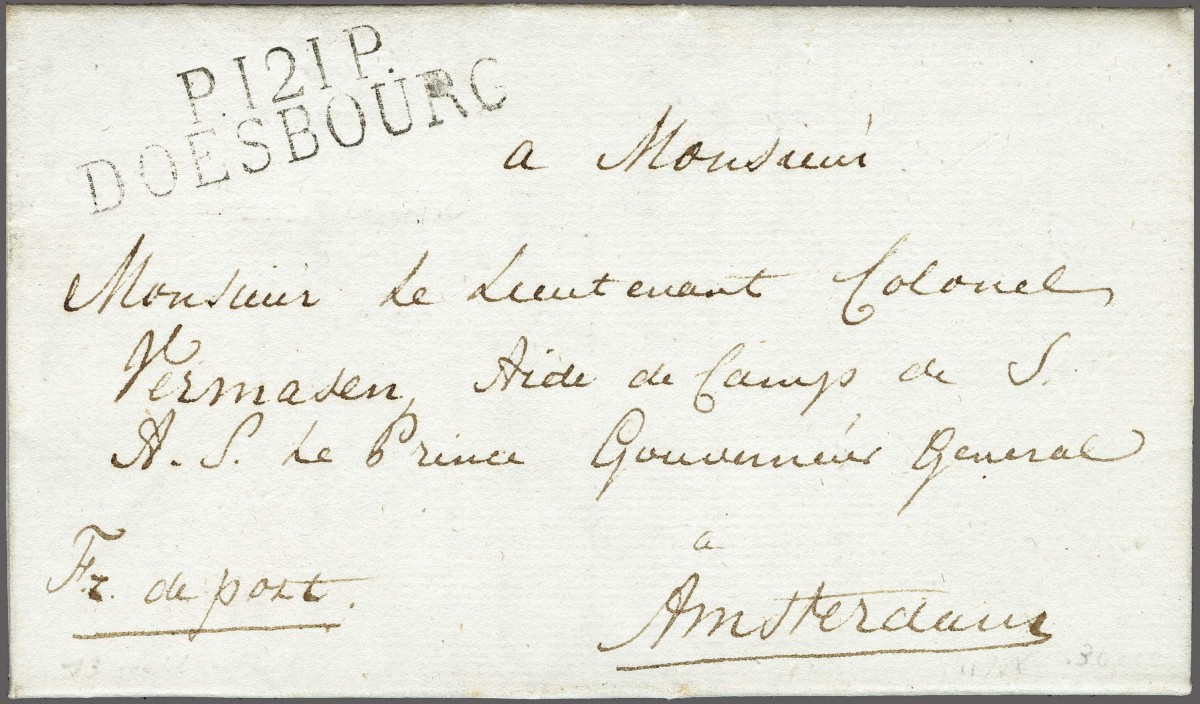 P.121P.
DOESBOURG
a Monsieur
Monsieur Le Lieutenant Colonel
Vermasen, Aide de Camp de S.
A. S. Le Prince Gouverneur General
a
Amsterdam
Fr. de port.